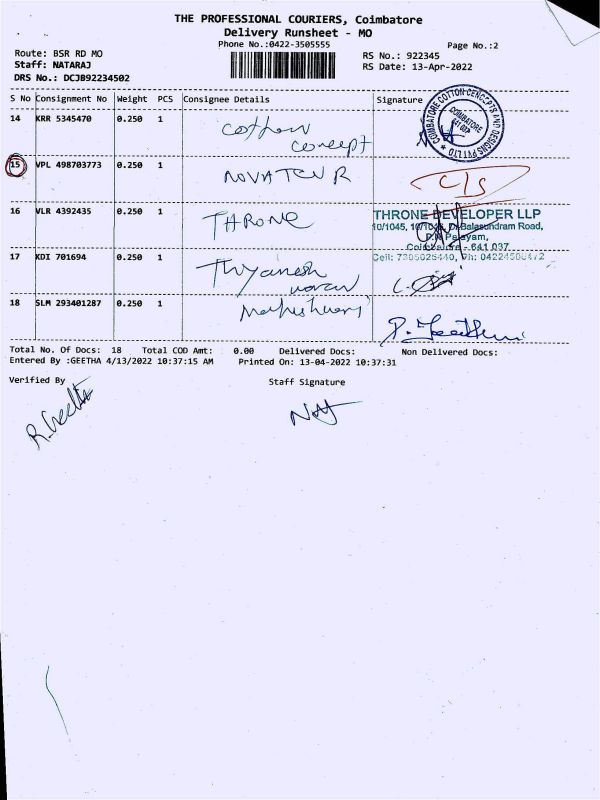 THE PROFESSIONAL COURIERS, Coimbatore
Delivery Runsheet - MO
Phone No.:0422-3505555
Page No.:2
Route: BSR RD MO
RS No.: 922345
Staff: NATARAJ
RS Date: 13-Apr-2022
DRS No.: DCJB92234502
S No Consignment No Weight PCS Consignee Details Signature
14 KRR 5345470 0.250 1 Cotton
concept
COIMBATORE COTTON CENCCPTS AND DESIGNS PVT LTD
COIMBATORE
15 VPL 498703773 0.250 1 NOVATEUR C/S
16 VLR 4392435 0.250 1 THRONE
THRONE DEVELOPER LLP
Balasundram Road,
Palayam,
Coimbatore - 641 037
17 KDI 701694 0.250 1
Cell:
18 SLM 293401287 0.250 1
Total No. Of Docs: 18 Total COD Amt: 0.00 Delivered Docs: Non Delivered Docs:
Entered By :GEETHA 4/13/2022 10:37:15 AM Printed On: 13-04-2022 10:37:31
Verified By Staff Signature
R. Geetha